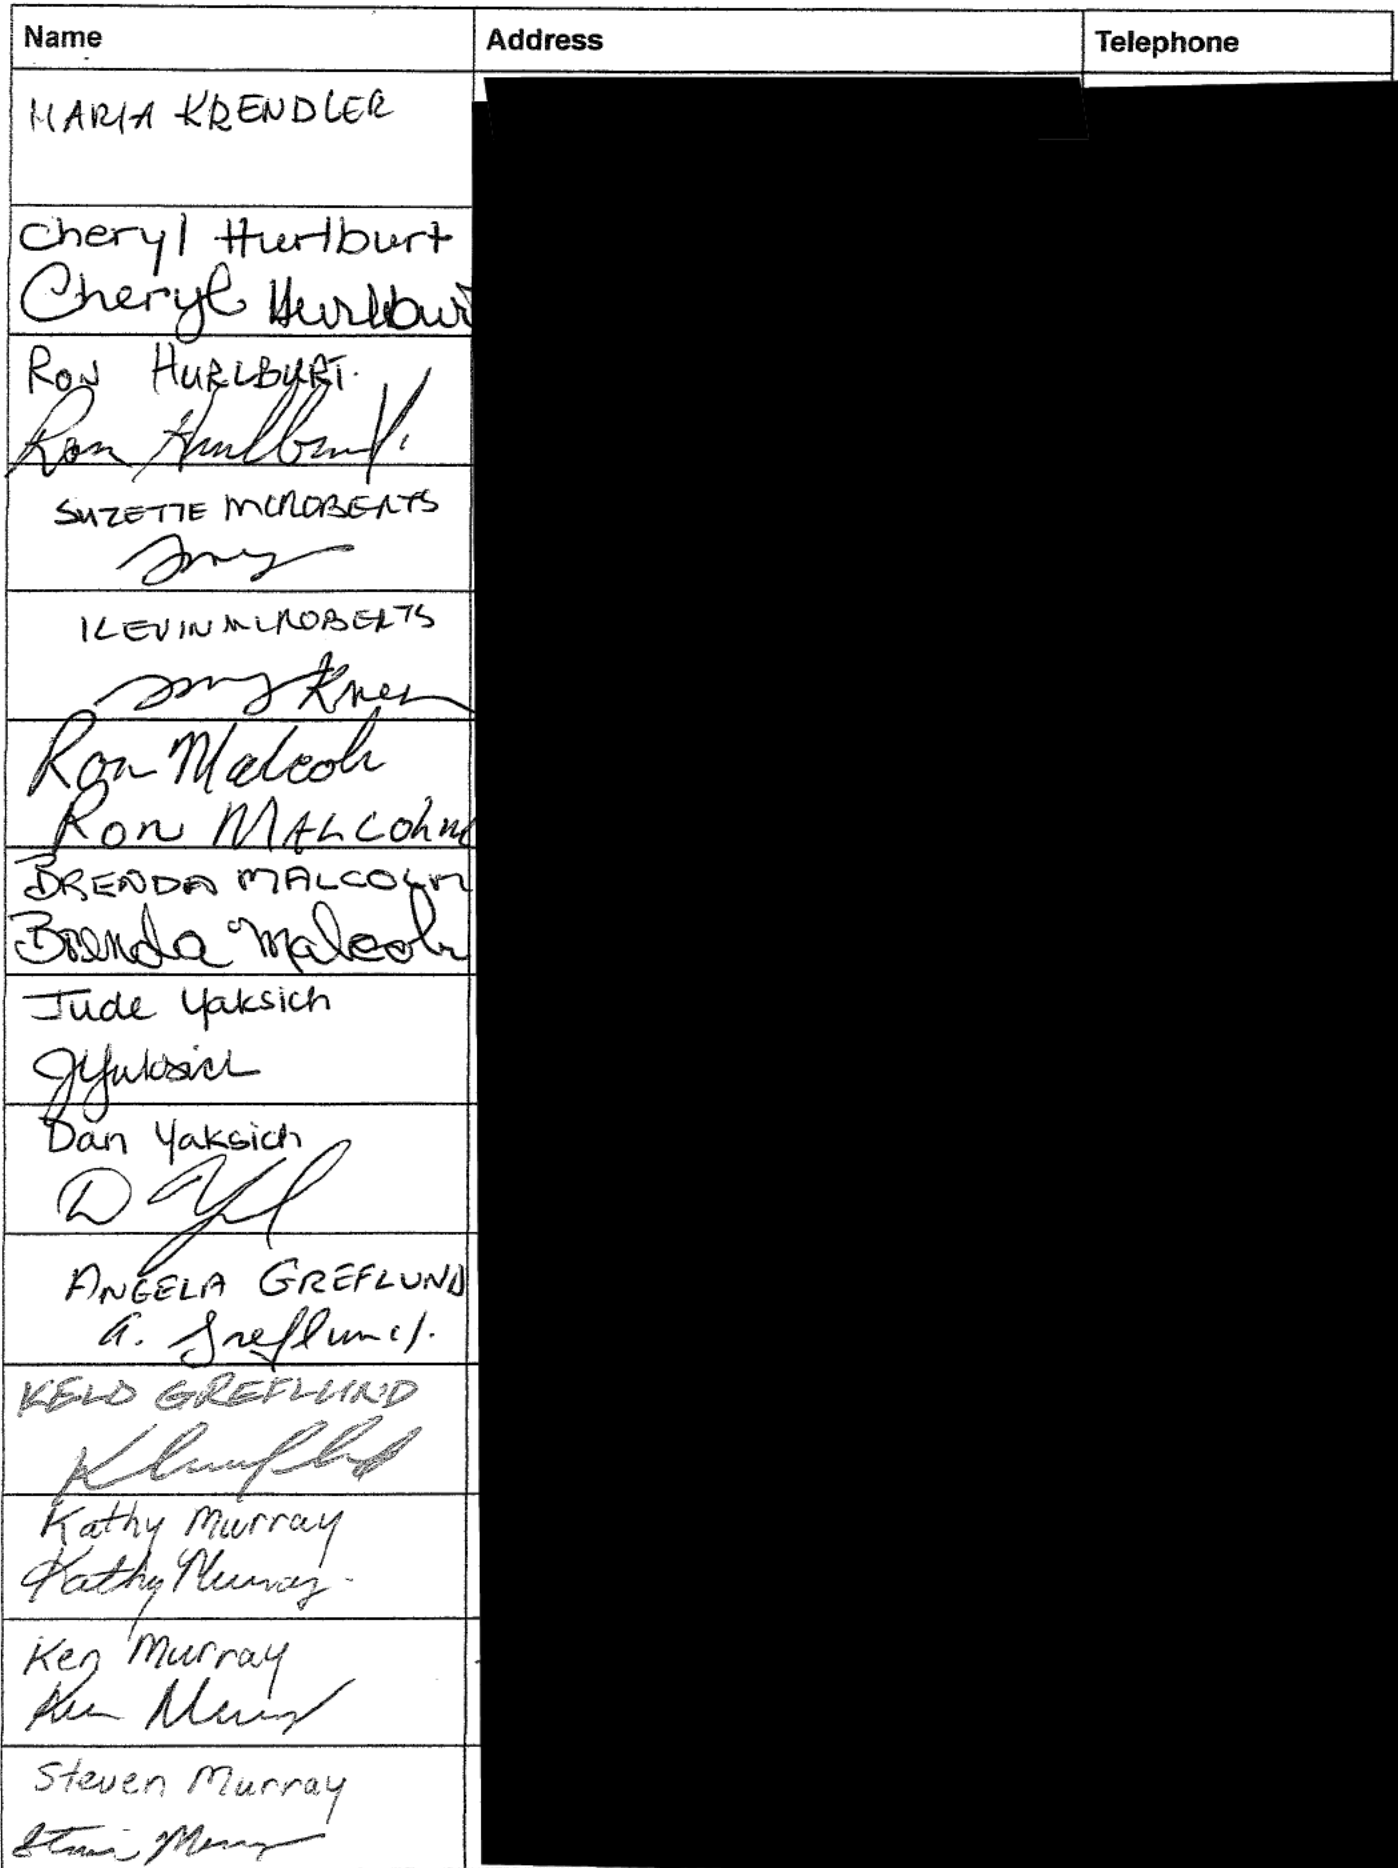 Name Address Telephone
MARIA KRENDLER
Cheryl Hurlburt
Cheryl Hurlbur
RON HURLBURT.
Ron Hurlburt.
SUZETTE MCROBERTS
KEVIN MCROBERTS
Ron Malcolm
Ron MALCOLM
BRENDA MALCOLM
Brenda Malcolm
Jude Yaksich
JYaksich
Dan Yaksich
D
ANGELA GREFLUND
A. Greflund.
KELD GREFLUND
Kathy Murray
Kathy Murray
Ken Murray
Ken Murray
Steven Murray
Steven Murray